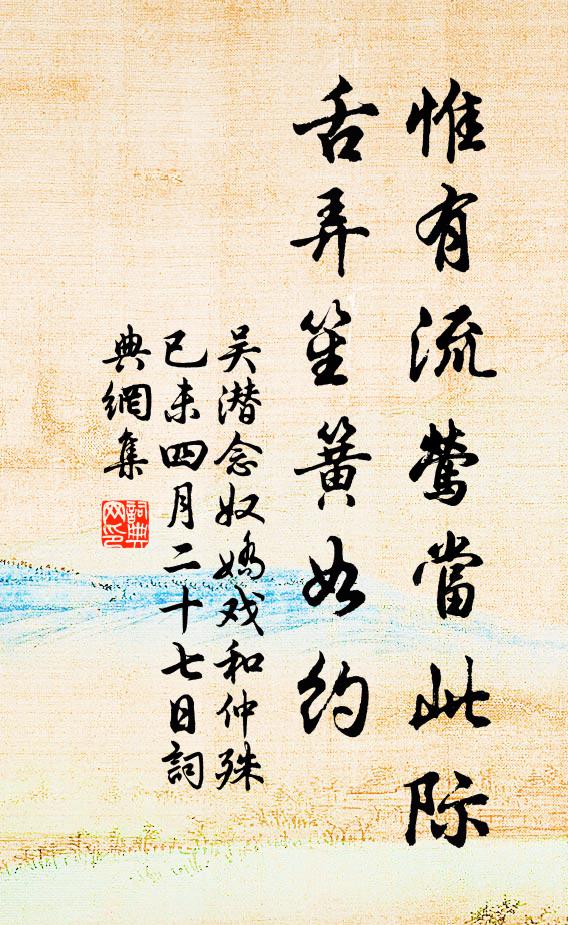 惟有流莺當此际
舌弄笙簧如约
吴潜念奴嬌戏和仲殊
已未四月二十七日詞
典網集
詞典
网印